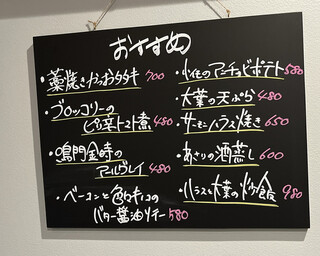 おすすめ
・藁焼きかつおタタキ 700
・ブロッコリーの
ピリ辛トマト煮 480
・鳴門金時の
480
・ベーコンと色々キノコの
バター醤油ソテー 580
アンチョビポテト 580
大葉の天ぷら 480
・サーモンハラス焼き 650
・あさりの酒蒸し 600
・ハラスと大葉の炒飯 980